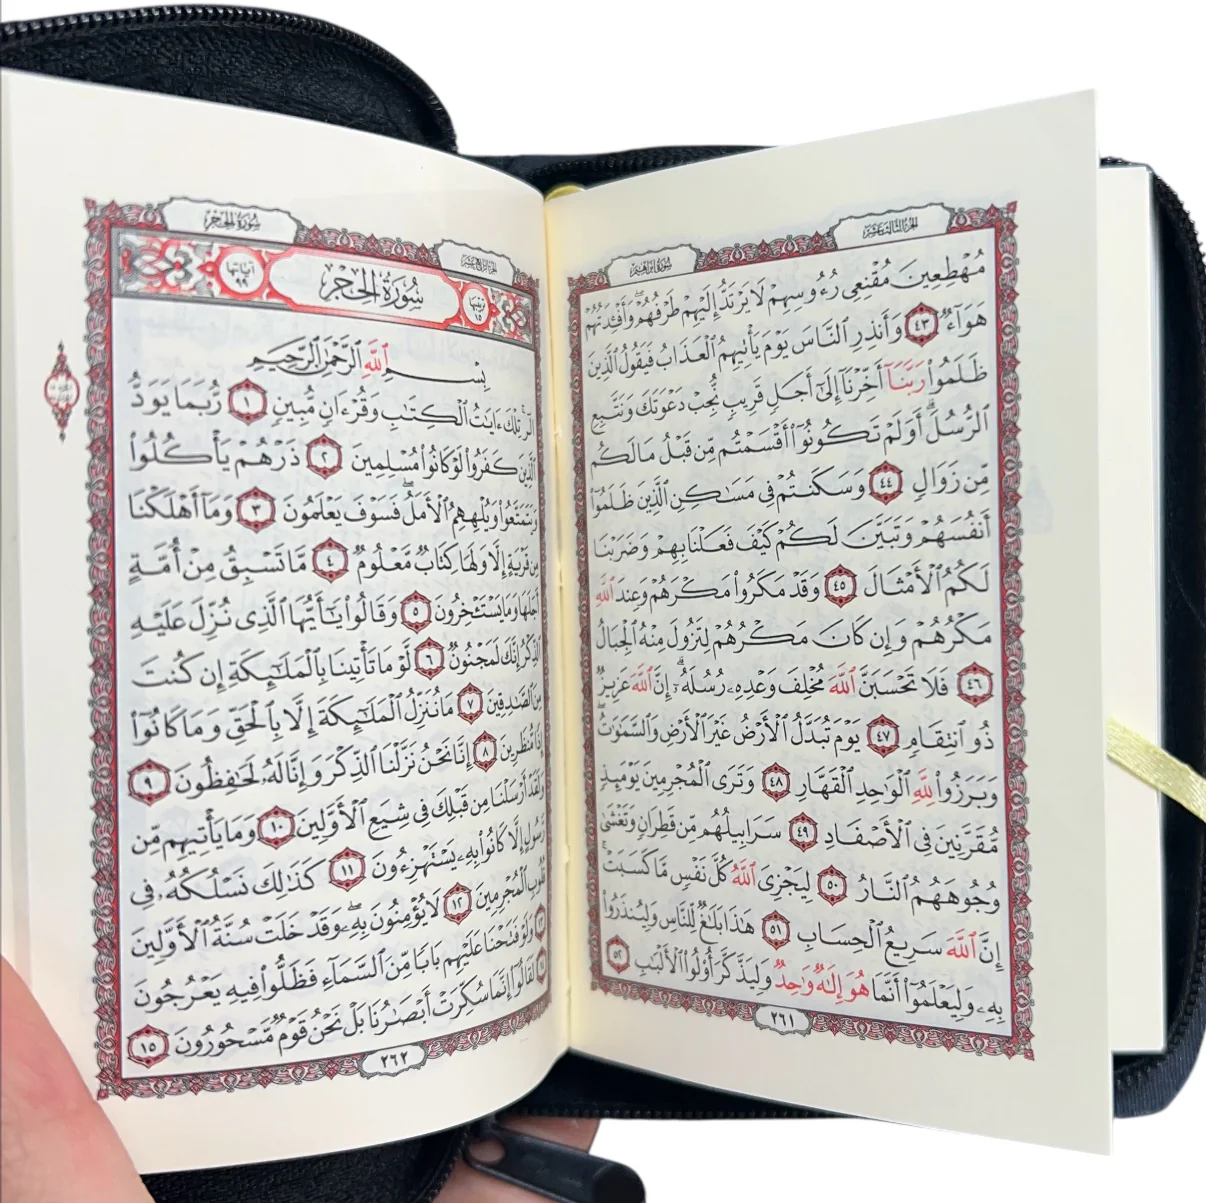 الجزء الثالث عشر
سورة إبراهيم
مُهْطِعِينَ مُقْنِعِي رُءُوسِهِمْ لَا يَرْتَدُّ إِلَيْهِمْ طَرْفُهُمْ ۖ وَأَفْـِٔدَتُهُمْ
هَوَآءٌ ٤٣ وَأَنذِرِ ٱلنَّاسَ يَوْمَ يَأْتِيهِمُ ٱلْعَذَابُ فَيَقُولُ ٱلَّذِينَ
ظَلَمُوا۟ رَبَّنَآ أَخِّرْنَآ إِلَىٰٓ أَجَلٍ قَرِيبٍ نُّجِبْ دَعْوَتَكَ وَنَتَّبِعِ
ٱلرُّسُلَ ۗ أَوَلَمْ تَكُونُوٓا۟ أَقْسَمْتُم مِّن قَبْلُ مَا لَكُم
مِّن زَوَالٍ ٤٤ وَسَكَنتُمْ فِى مَسَـٰكِنِ ٱلَّذِينَ ظَلَمُوٓا۟
أَنفُسَهُمْ وَتَبَيَّنَ لَكُمْ كَيْفَ فَعَلْنَا بِهِمْ وَضَرَبْنَا
لَكُمُ ٱلْأَمْثَالَ ٤٥ وَقَدْ مَكَرُوا۟ مَكْرَهُمْ وَعِندَ ٱللَّهِ
مَكْرُهُمْ وَإِن كَانَ مَكْرُهُمْ لِتَزُولَ مِنْهُ ٱلْجِبَالُ
٤٦ فَلَا تَحْسَبَنَّ ٱللَّهَ مُخْلِفَ وَعْدِهِۦ رُسُلَهُۥٓ ۗ إِنَّ ٱللَّهَ عَزِيزٌ
ذُو ٱنتِقَامٍ ٤٧ يَوْمَ تُبَدَّلُ ٱلْأَرْضُ غَيْرَ ٱلْأَرْضِ وَٱلسَّمَـٰوَٰتُ ۖ
وَبَرَزُوا۟ لِلَّهِ ٱلْوَٰحِدِ ٱلْقَهَّارِ ٤٨ وَتَرَى ٱلْمُجْرِمِينَ يَوْمَئِذٍ
مُّقَرَّنِينَ فِى ٱلْأَصْفَادِ ٤٩ سَرَابِيلُهُم مِّن قَطِرَانٍ وَتَغْشَىٰ
وُجُوهَهُمُ ٱلنَّارُ ٥٠ لِيَجْزِىَ ٱللَّهُ كُلَّ نَفْسٍ مَّا كَسَبَتْ ۚ
إِنَّ ٱللَّهَ سَرِيعُ ٱلْحِسَابِ ٥١ هَـٰذَا بَلَـٰغٌ لِّلنَّاسِ وَلِيُنذَرُوا۟
بِهِۦ وَلِيَعْلَمُوٓا۟ أَنَّمَا هُوَ إِلَـٰهٌ وَٰحِدٌ وَلِيَذَّكَّرَ أُو۟لُوا۟ ٱلْأَلْبَـٰبِ ٥٢
٢٦١
الجزء الرابع عشر
سورة الحجر
ترتيبها ١٥
سُورَةُ الحِجْرِ
آياتها ٩٩
بِسْمِ ٱللَّهِ ٱلرَّحْمَـٰنِ ٱلرَّحِيمِ
الٓر ۚ تِلْكَ ءَايَـٰتُ ٱلْكِتَـٰبِ وَقُرْءَانٍ مُّبِينٍ ١ رُّبَمَا يَوَدُّ
ٱلَّذِينَ كَفَرُوا۟ لَوْ كَانُوا۟ مُسْلِمِينَ ٢ ذَرْهُمْ يَأْكُلُوا۟
وَيَتَمَتَّعُوا۟ وَيُلْهِهِمُ ٱلْأَمَلُ ۖ فَسَوْفَ يَعْلَمُونَ ٣ وَمَآ أَهْلَكْنَا
مِن قَرْيَةٍ إِلَّا وَلَهَا كِتَابٌ مَّعْلُومٌ ٤ مَّا تَسْبِقُ مِنْ أُمَّةٍ
أَجَلَهَا وَمَا يَسْتَـْٔخِرُونَ ٥ وَقَالُوا۟ يَـٰٓأَيُّهَا ٱلَّذِى نُزِّلَ عَلَيْهِ
ٱلذِّكْرُ إِنَّكَ لَمَجْنُونٌ ٦ لَّوْ مَا تَأْتِينَا بِٱلْمَلَـٰٓئِكَةِ إِن كُنتَ
مِنَ ٱلصَّـٰدِقِينَ ٧ مَا نُنَزِّلُ ٱلْمَلَـٰٓئِكَةَ إِلَّا بِٱلْحَقِّ وَمَا كَانُوٓا۟
إِذًا مُّنظَرِينَ ٨ إِنَّا نَحْنُ نَزَّلْنَا ٱلذِّكْرَ وَإِنَّا لَهُۥ لَحَـٰفِظُونَ ٩
وَلَقَدْ أَرْسَلْنَا مِن قَبْلِكَ فِى شِيَعِ ٱلْأَوَّلِينَ ١٠ وَمَا يَأْتِيهِم مِّن
رَّسُولٍ إِلَّا كَانُوا۟ بِهِۦ يَسْتَهْزِءُونَ ١١ كَذَٰلِكَ نَسْلُكُهُۥ فِى
قُلُوبِ ٱلْمُجْرِمِينَ ١٢ لَا يُؤْمِنُونَ بِهِۦ ۖ وَقَدْ خَلَتْ سُنَّةُ ٱلْأَوَّلِينَ
١٣ وَلَوْ فَتَحْنَا عَلَيْهِم بَابًا مِّنَ ٱلسَّمَآءِ فَظَلُّوا۟ فِيهِ يَعْرُجُونَ
١٤ لَقَالُوٓا۟ إِنَّمَا سُكِّرَتْ أَبْصَـٰرُنَا بَلْ نَحْنُ قَوْمٌ مَّسْحُورُونَ ١٥
٢٦٢